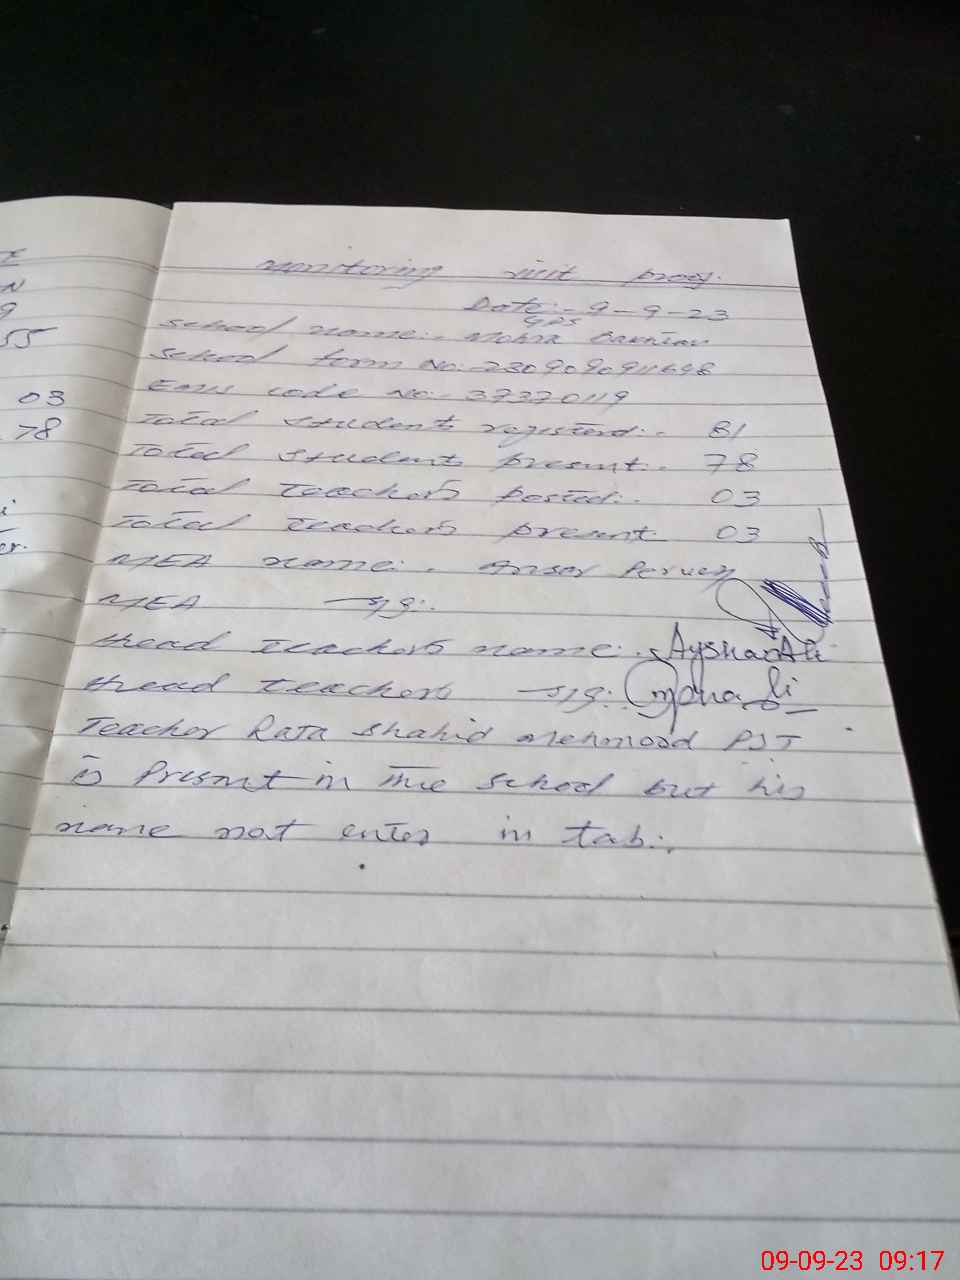 E
N
9
55
03
78
i
er.
monitoring visit proof.
Date:- 9-9-23
GPS
School name:. Mohra
School form No:-
EMIS code No:- 37370119
Total students registerd:. 81
Total students present:. 78
Total teachers posted:. 03
Total teachers present 03
MEA name:. Ansar Pervez
MEA sig:.
Head teachers name:. Aysha Ali
Head teachers sig:. Aysha Ali
Teacher Raja Shahid Mehmood PST
is Present in the school but his
name not enter in tab:.
09-09-23 09:17